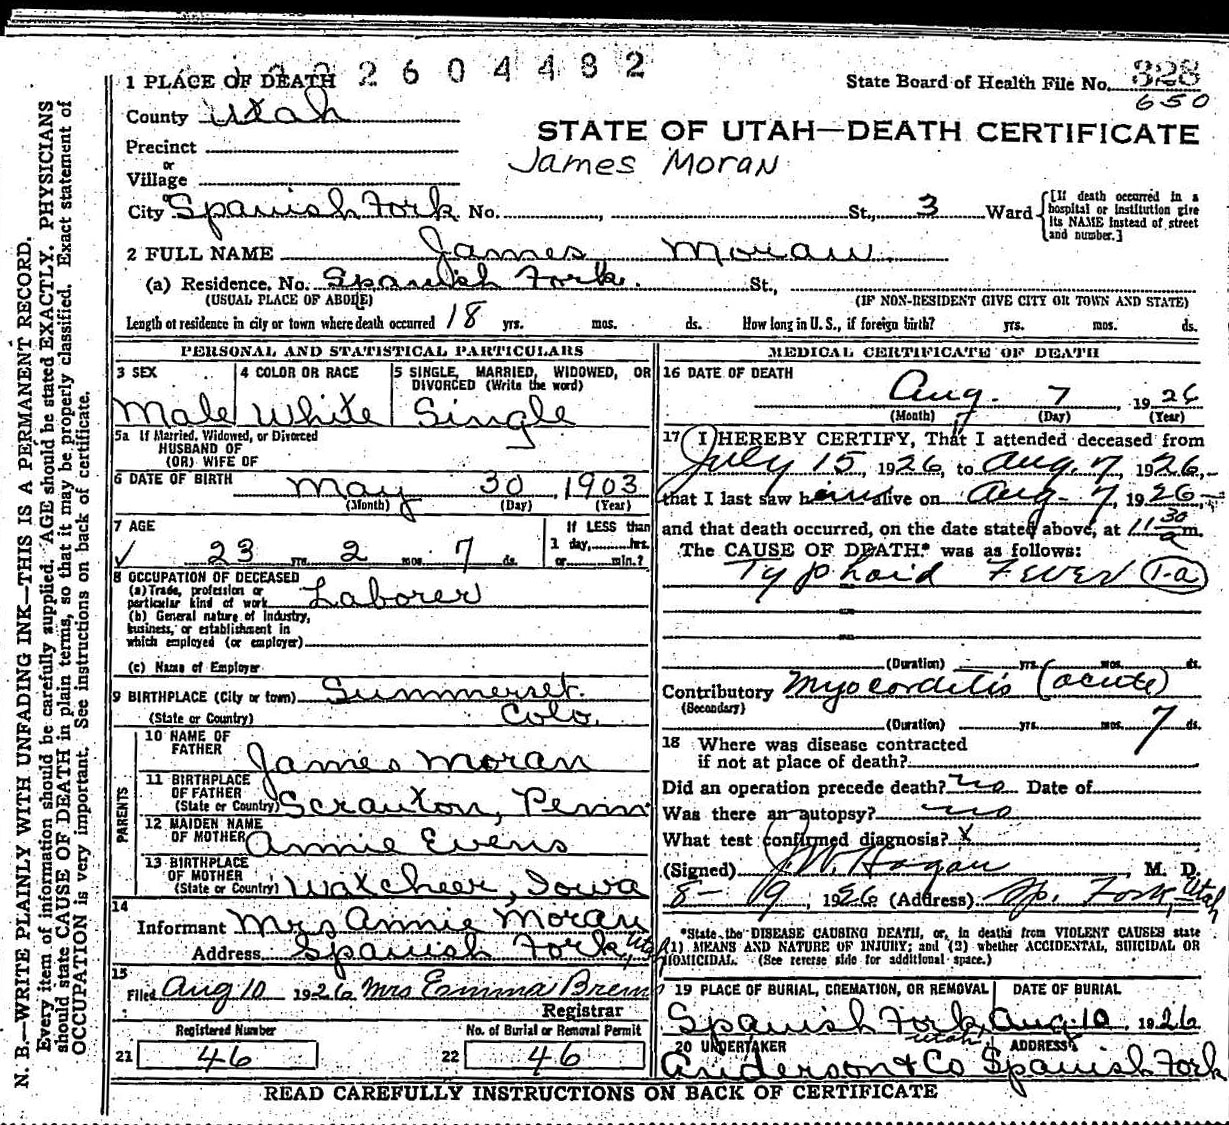 2604482
1 PLACE OF DEATH
State Board of Health File No. 328
650
County Utah
STATE OF UTAH—DEATH CERTIFICATE
Precinct
James Moran
or
Village
City Spanish Fork No. , St., 3 Ward
[If death occurred in a hospital or institution give its NAME instead of street and number.]
2 FULL NAME James Moran
(a) Residence, No. Spanish Fork. St.,
(USUAL PLACE OF ABODE) (IF NON-RESIDENT GIVE CITY OR TOWN AND STATE)
Length of residence in city or town where death occurred 18 yrs. mos. ds. How long in U. S., if foreign birth? yrs. mos. ds.
PERSONAL AND STATISTICAL PARTICULARS
3 SEX 4 COLOR OR RACE 5 SINGLE, MARRIED, WIDOWED, OR
DIVORCED (Write the word)
Male White Single
5a If Married, Widowed, or Divorced
HUSBAND OF
(OR) WIFE OF
6 DATE OF BIRTH May 30, 1903
(Month) (Day) (Year)
7 AGE If LESS than
23 yrs. 2 mos. 7 ds. 1 day, hrs.
or min.?
8 OCCUPATION OF DECEASED
(a) Trade, profession or
particular kind of work Laborer
(b) General nature of industry,
business, or establishment in
which employed (or employer)
(c) Name of Employer
9 BIRTHPLACE (City or town) Summerset.
(State or Country) Colo.
PARENTS
10 NAME OF
FATHER James Moran
11 BIRTHPLACE
OF FATHER
(State or Country) Scranton, Penn
12 MAIDEN NAME
OF MOTHER Annie Evens
13 BIRTHPLACE
OF MOTHER
(State or Country) Watcheer, Iowa
14
Informant Mrs Annie Moran
Address Spanish Fork, Utah
15
Filed Aug 10 1926 Mrs Emma Brem
Registrar
Registered Number No. of Burial or Removal Permit
21 46 22 46
MEDICAL CERTIFICATE OF DEATH
16 DATE OF DEATH
Aug. 7, 1926
(Month) (Day) (Year)
17 I HEREBY CERTIFY, That I attended deceased from
July 15, 1926, to Aug. 7, 1926,
that I last saw him alive on Aug - 7, 1926
and that death occurred, on the date stated above, at 11 30 a m.
The CAUSE OF DEATH* was as follows:
Typhoid Fever 1-a
(Duration) yrs. mos. ds.
Contributory Myocorditis (acute)
(Secondary)
(Duration) yrs. mos. 7 ds.
18 Where was disease contracted
if not at place of death?
Did an operation precede death? no Date of
Was there an autopsy? no
What test confirmed diagnosis? X
(Signed) J. W. Hagan, M. D.
8-19, 1926 (Address) Sp. Fork, Utah
*State the DISEASE CAUSING DEATH, or, in deaths from VIOLENT CAUSES state
(1) MEANS AND NATURE OF INJURY; and (2) whether ACCIDENTAL, SUICIDAL OR
HOMICIDAL. (See reverse side for additional space.)
19 PLACE OF BURIAL, CREMATION, OR REMOVAL DATE OF BURIAL
Spanish Fork, Utah Aug. 10, 1926
20 UNDERTAKER ADDRESS
Anderson & Co Spanish Fork
READ CAREFULLY INSTRUCTIONS ON BACK OF CERTIFICATE
N. B.—WRITE PLAINLY WITH UNFADING INK—THIS IS A PERMANENT RECORD.
Every item of information should be carefully supplied. AGE should be stated EXACTLY. PHYSICIANS
should state CAUSE OF DEATH in plain terms, so that it may be properly classified. Exact statement of
OCCUPATION is very important. See instructions on back of certificate.